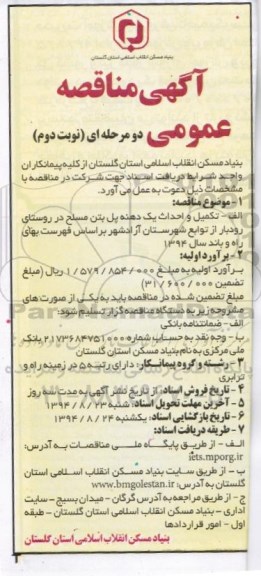 بنیاد مسکن انقلاب اسلامی استان گلستان
آگهی مناقصه
عمومی دو مرحله ای (نوبت دوم)
بنیاد مسکن انقلاب اسلامی استان گلستان از کلیه پیمانکاران
واجد شرایط دریافت اسناد جهت شرکت در مناقصه با
مشخصات ذیل دعوت به عمل می آورد.
۱- موضوع مناقصه:
الف - تکمیل و احداث یک دهنه پل بتن مسلح در روستای
رودبار از توابع شهرستان آزادشهر بر اساس فهرست بهای
راه و باند سال ۱۳۹۴
۲- برآورد اولیه:
برآورد اولیه به مبلغ ۱/۵۷۹/۸۵۴/۰۰۰ ریال (مبلغ
تضمین ۳۱/۶۰۰/۰۰۰)
مبلغ تضمین شده در مناقصه باید به یکی از صورت های
مشروحه زیر به دستگاه مناقصه گزار تسلیم شود:
الف - ضمانتنامه بانکی
ب - وجه نقد به حساب شماره ۲۱۷۳۶۸۴۷۵۱۰۰۰ بانک
ملی مرکزی به نام بنیاد مسکن استان گلستان
۳- رشته و گروه پیمانکار: دارای رتبه ۵ در زمینه راه و
ترابری
۴- تاریخ فروش اسناد: از تاریخ نشر آگهی به مدت سه روز
۵- آخرین مهلت تحویل اسناد: شنبه ۱۳۹۴/۸/۲۳
۶- تاریخ بازگشایی اسناد: یکشنبه ۱۳۹۴/۸/۲۴
۷- طریقه دریافت اسناد:
الف - از طریق پایگاه ملی مناقصات به آدرس:
iets.mporg.ir
ب - از طریق سایت بنیاد مسکن انقلاب اسلامی استان
گلستان به آدرس: www.bmgolestan.ir
ج - از طریق مراجعه به آدرس گرگان - میدان بسیج - سایت
اداری - بنیاد مسکن انقلاب اسلامی استان گلستان - طبقه
اول - امور قراردادها
بنیاد مسکن انقلاب اسلامی استان گلستان